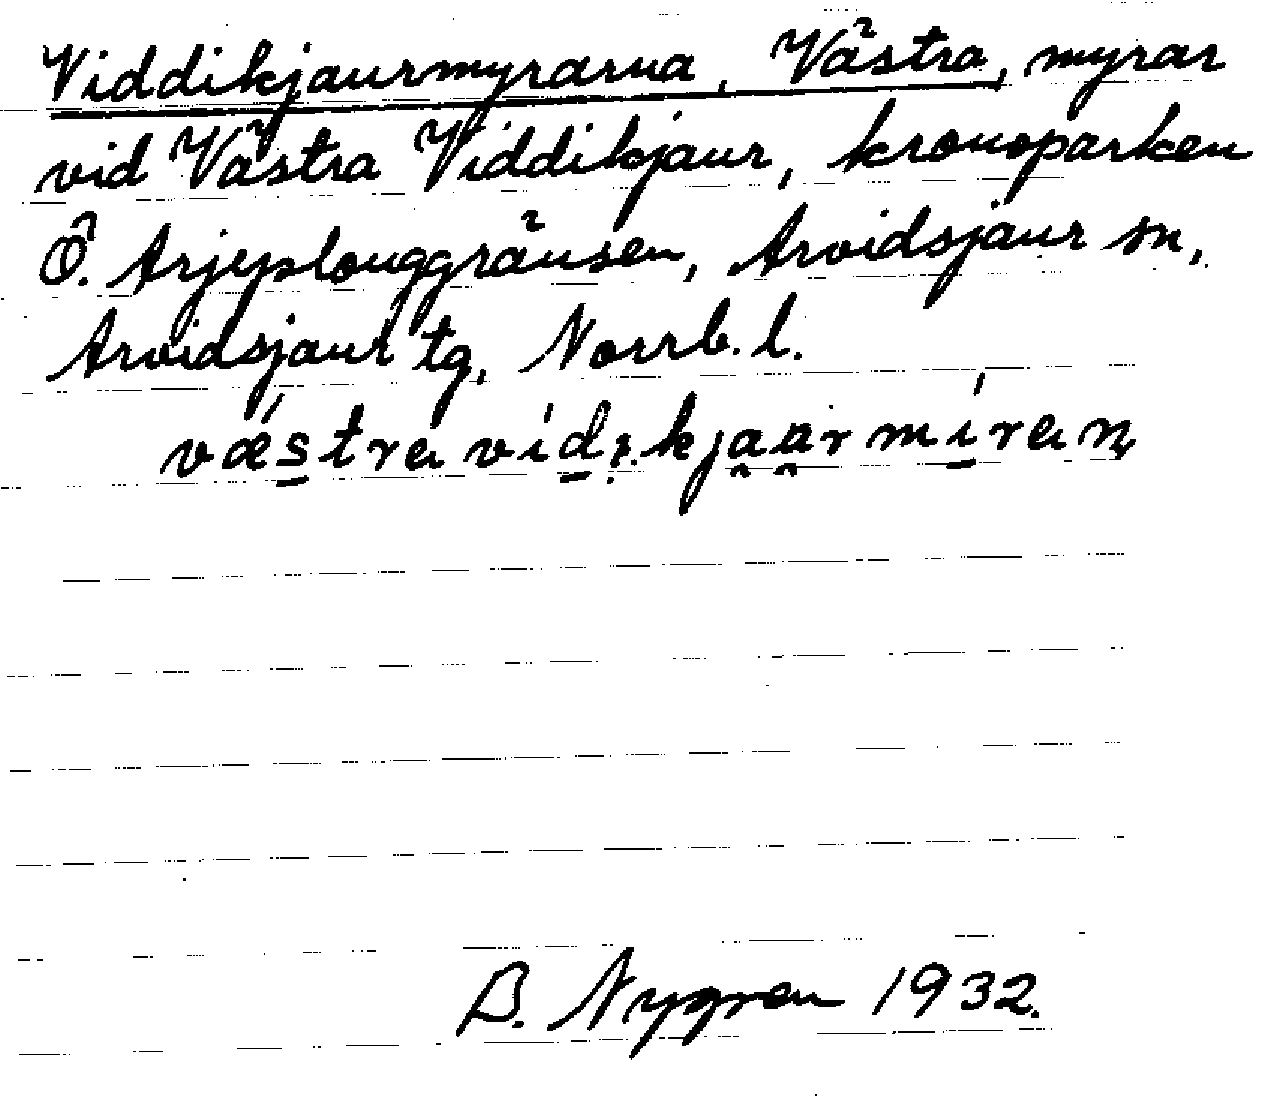 Viddikjaurmyrarna, Västra, myrar
vid Västra Viddikjaur, kronoparken
Ö. Arjeplouggränsen, Arvidsjaur sn,
Arvidsjaur tg, Norrb. l.
væ̀stra vìdikjaarmìran
B. Nygren 1932.